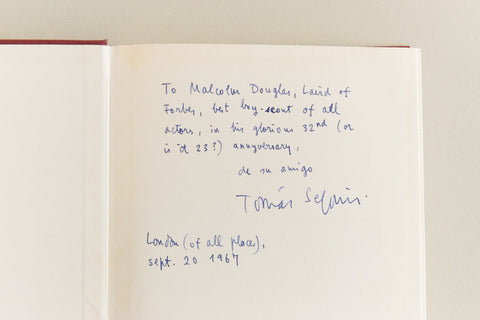 To Malcolm Douglas, Laird of
Forbes, best boy-scout of all
actors, in his glorious 32nd (or
is it 23?) annyversary,
de su amigo
Tomás
London (of all places),
sept. 20 1967